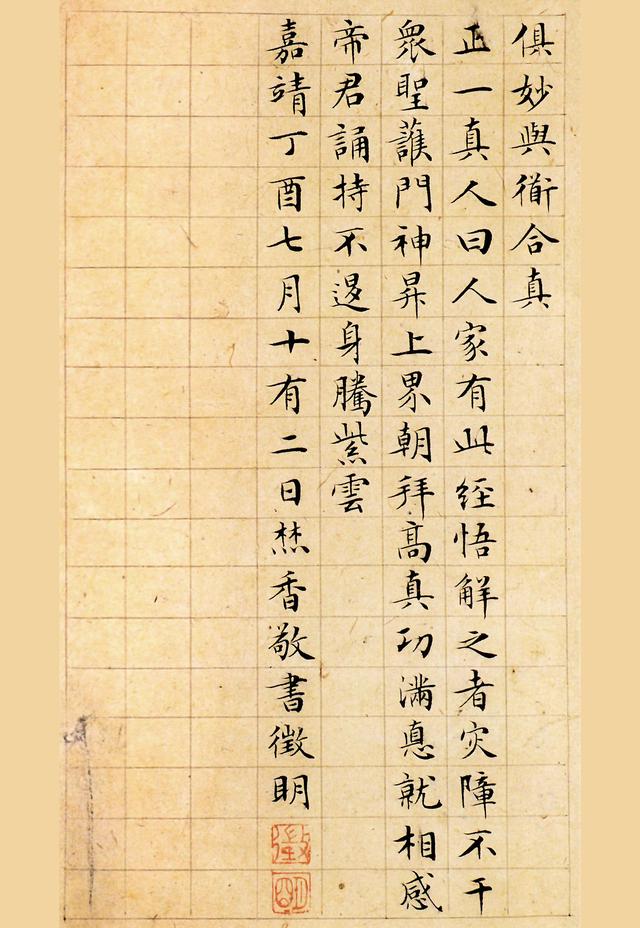 俱妙與衜合真
正一真人曰人家有此經悟解之者灾障不干
衆聖護門神昇上界朝拜髙真功滿惪就相感
帝君誦持不退身騰紫雲
嘉靖丁酉七月十有二日焚香敬書徵明
徵
明